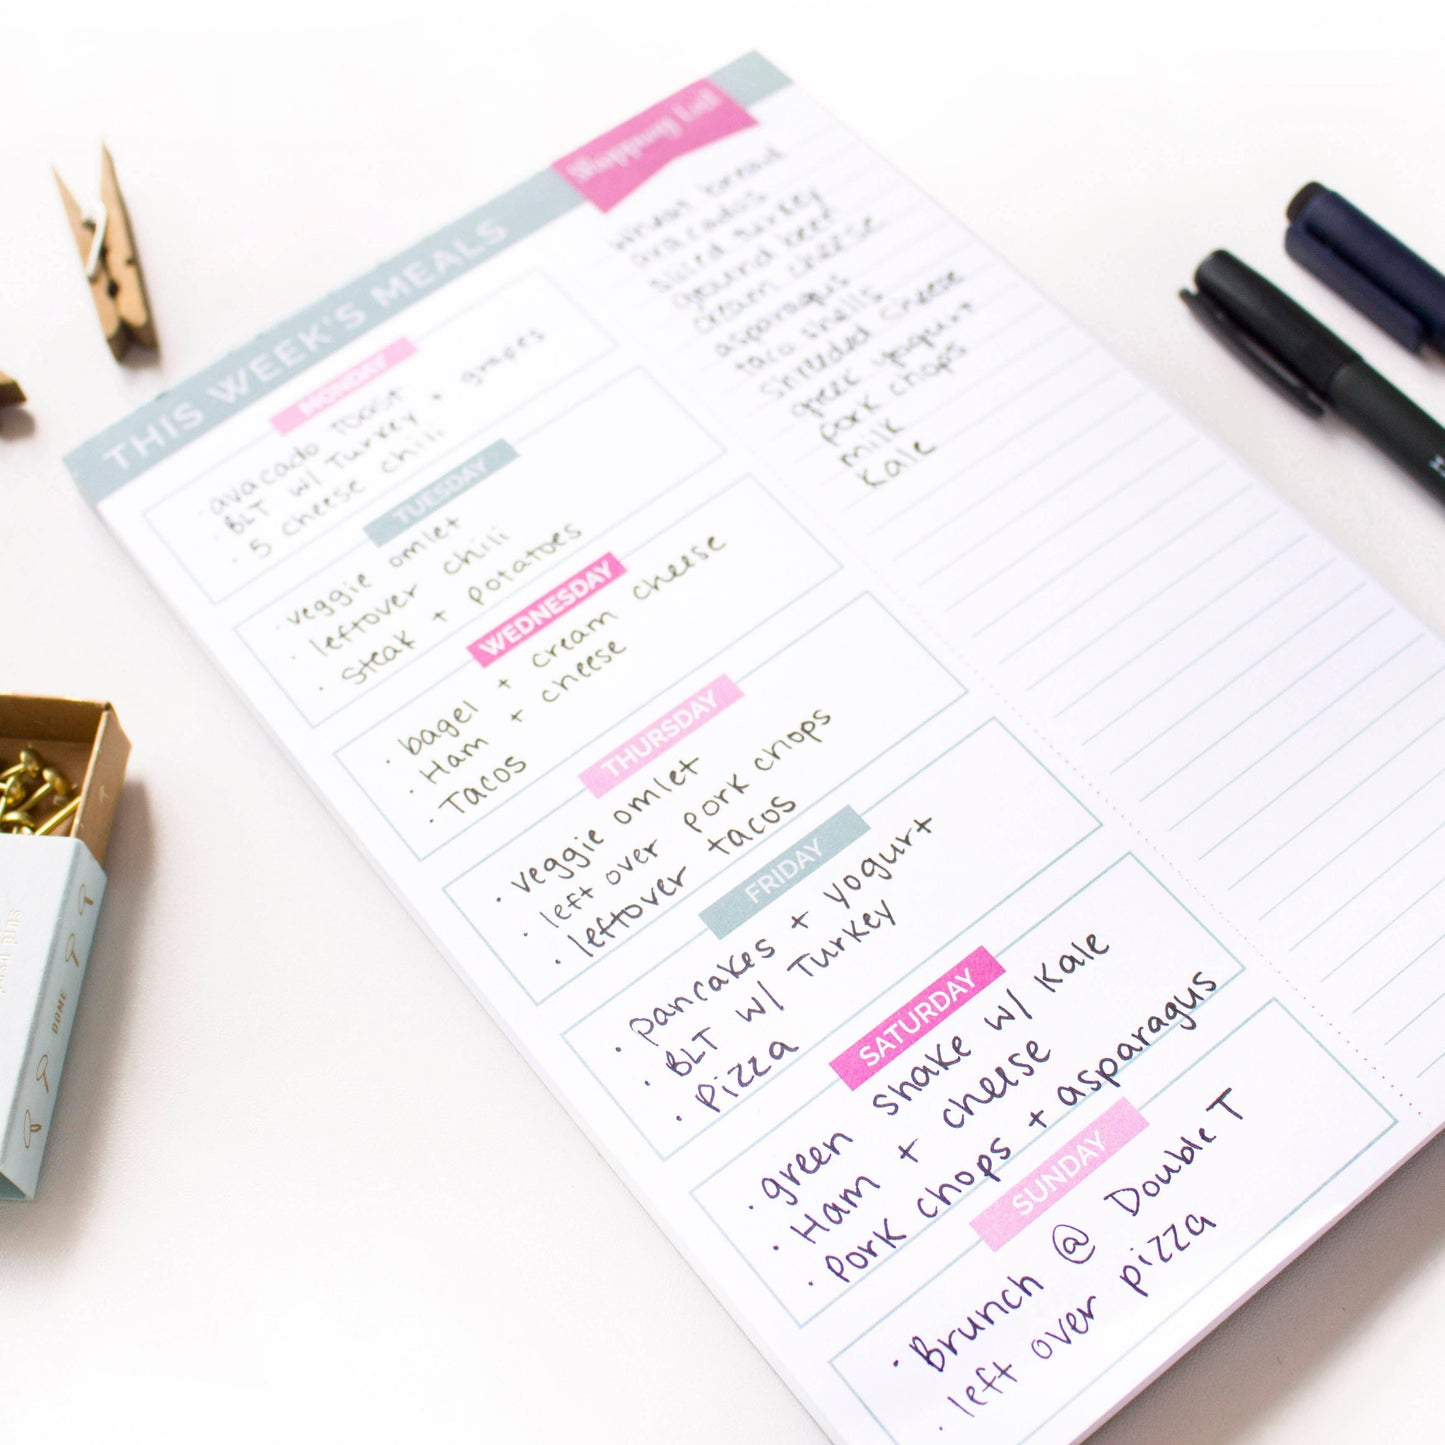 THIS WEEK'S MEALS
MONDAY
avacado toast
BLT w/ Turkey + grapes
5 cheese chili
TUESDAY
veggie omlet
leftover chili
steak + potatoes
WEDNESDAY
bagel + cream cheese
Ham + cheese
Tacos
THURSDAY
veggie omlet
left over pork chops
leftover tacos
FRIDAY
pancakes + yogurt
BLT w/ Turkey
Pizza
SATURDAY
green shake w/ Kale
Ham + cheese
Pork chops + asparagus
SUNDAY
Brunch @ Double T
left over pizza
Shopping List
wheat bread
avacados
sliced turkey
ground beef
cream cheese
asparagus
taco shells
shredded cheese
greek yogurt
pork chops
milk
Kale
push pins
DOME